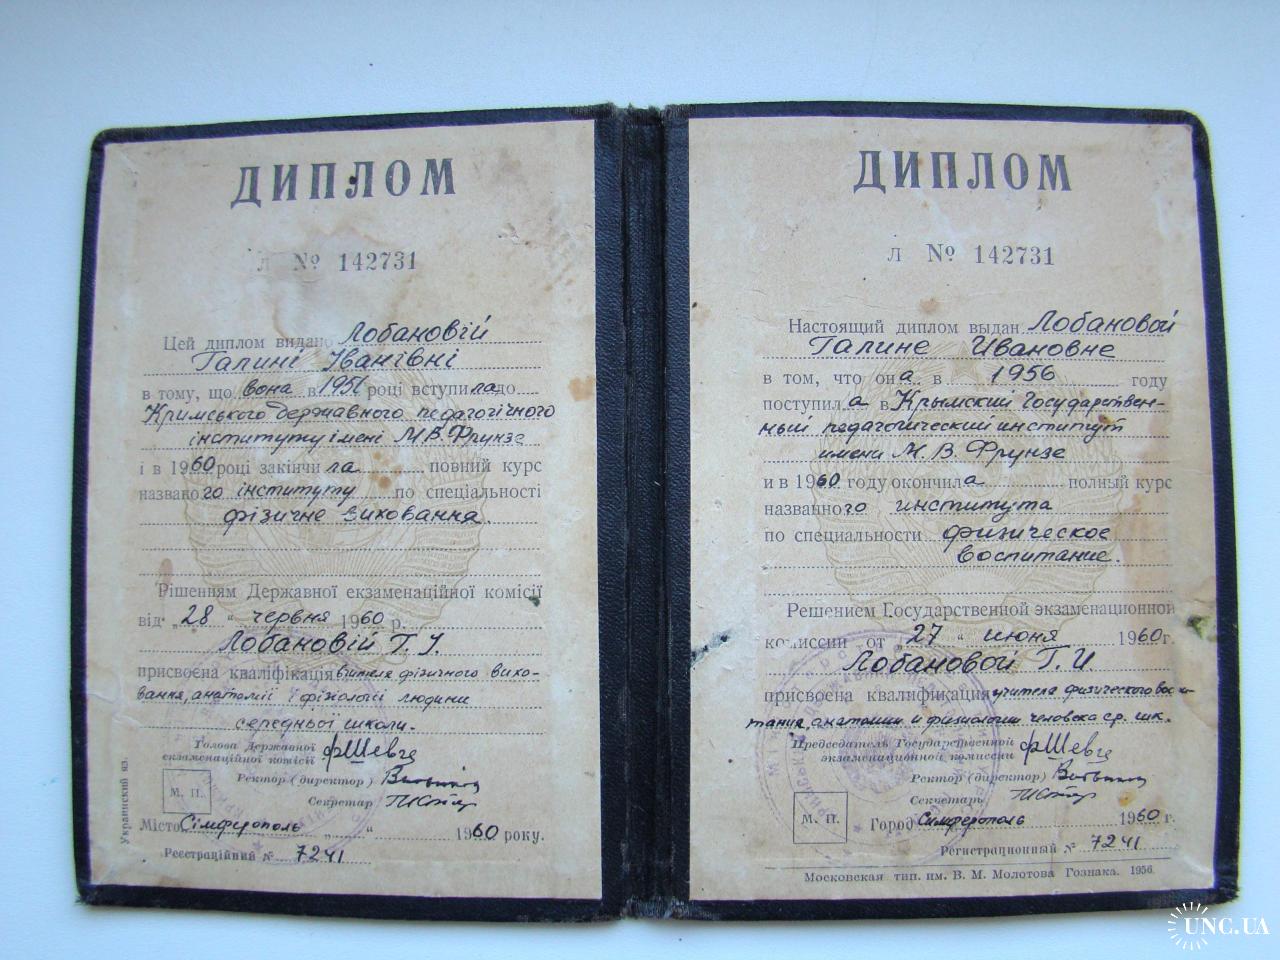 ДИПЛОМ
Л № 142731
Цей диплом видано Лобановій
Галині Іванівні
в тому, що вона в 1956 році вступила до
Кримського державного педагогічного
інституту імені М.В.Фрунзе
і в 1960 році закінчила повний курс
названого інституту по спеціальності
фізичне виховання.
Рішенням Державної екзаменаційної комісії
від „28“ червня 1960 р.
Лобановій Г. І.
присвоєна кваліфікація вчителя фізичного вихо-
вання, анатомії і фізіології людини
середньої школи.
Голова Державної
екзаменаційної комісії
Ректор (директор)
Секретар
М. П.
Місто Сімферополь „ “ 1960 року.
Реєстраційний № 7241
Украинский яз.
ДИПЛОМ
Л № 142731
Настоящий диплом выдан Лобановой
Галине Ивановне
в том, что она в 1956 году
поступила в Крымский Государствен-
ный педагогический институт
имени М. В. Фрунзе
и в 1960 году окончила полный курс
названного института
по специальности физическое
воспитание.
Решением Государственной экзаменационной
комиссии от „27“ июня 1960 г.
Лобановой Г. И.
присвоена квалификация учителя физического воспи-
тания, анатомии и физиологии человека ср. шк.
Председатель Государственной
экзаменационной комиссии
Ректор (директор)
Секретарь
М. П.
Город Симферополь 1960 г.
Регистрационный № 7241
Московская тип. им. В. М. Молотова Гознака. 1956.
UNC.UA